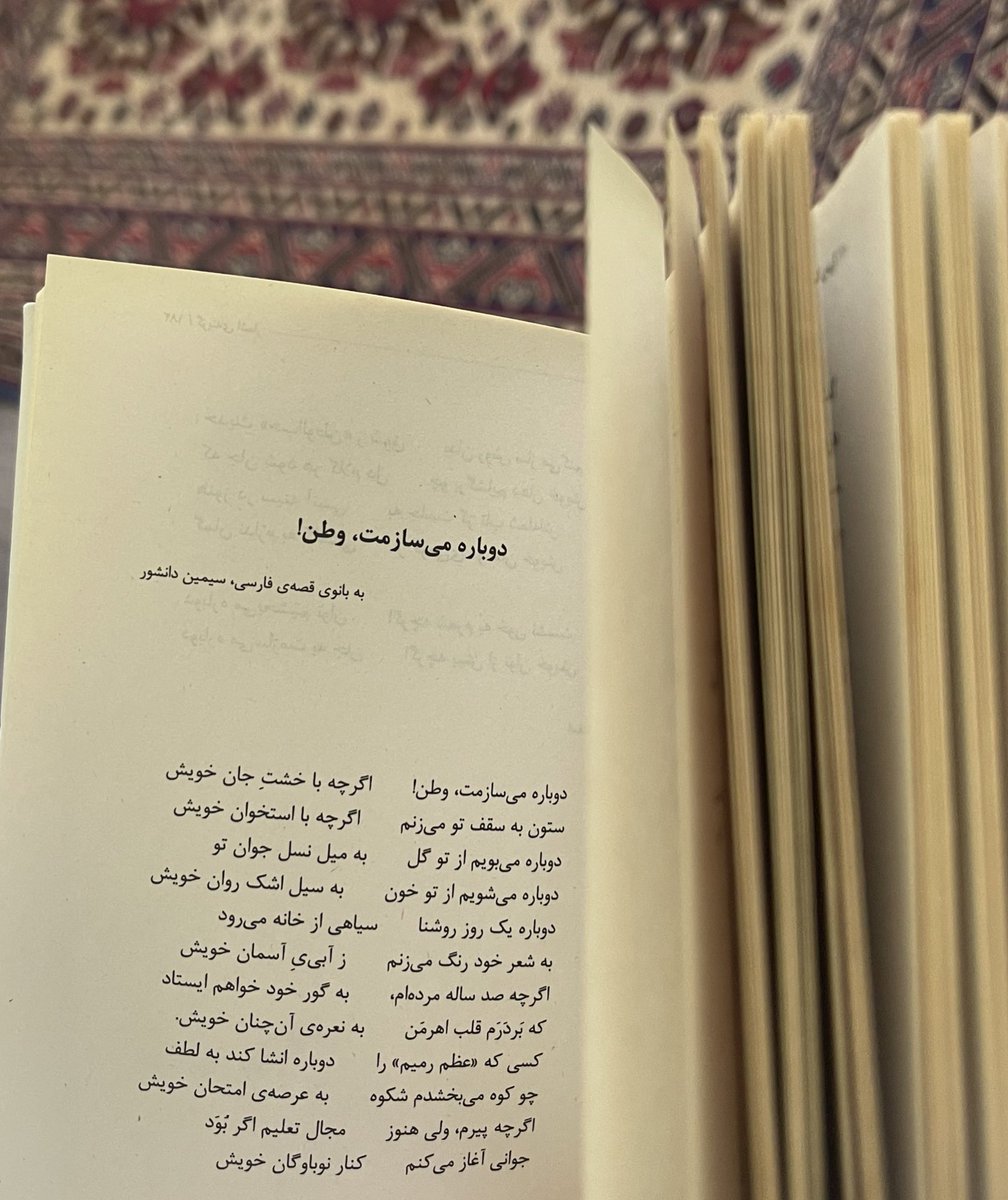 دوباره می‌سازمت، وطن!
به بانوی قصه‌ی فارسی، سیمین دانشور
دوباره می‌سازمت، وطن! اگرچه با خشتِ جان خویش
ستون به سقف تو می‌زنم اگرچه با استخوان خویش
دوباره می‌بویم از تو گل به میلِ نسل جوان تو
دوباره می‌شویم از تو خون به سیل اشک روان خویش
دوباره یک روز روشنا سیاهی از خانه می‌رود
به شعر خود رنگ می‌زنم ز آبیِ آسمان خویش
اگرچه صد ساله مرده‌ام، به گور خود خواهم ایستاد
که بَردَرَم قلب اهرمَن به نعره‌ی آن‌چنان خویش.
کسی که «عظم رمیم» را دوباره انشا کند به لطف
چو کوه می‌بخشدم شکوه به عرصه‌ی امتحان خویش
اگرچه پیرم، ولی هنوز مجال تعلیم اگر بُوَد
جوانی آغاز می‌کنم کنار نوباوگان خویش